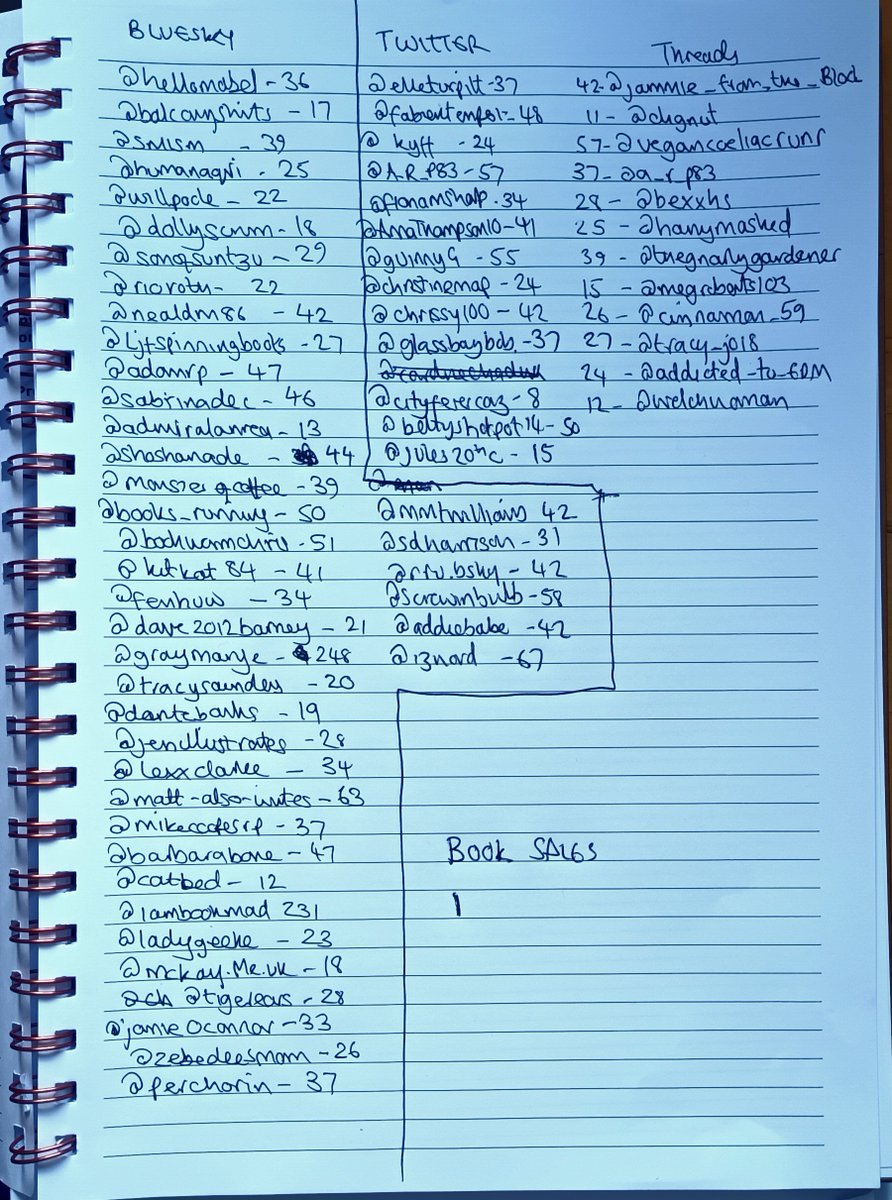 BLUESKY
@hellomabel - 36
@balconyshirts - 17
@smism - 39
@humanagui - 25
@willpoole - 22
@dollyscrum - 18
@songsuntzu - 29
@rioroth - 22
@nealdm86 - 42
@Ljtspinningbooks - 27
@adamrp - 47
@sabrinadec - 46
- 13
@shoshanade - 44
@monster of coffee - 39
@books_running - 50
@bookwormchris - 51
@kitkat84 - 41
@fenhuw - 34
@dave2012barney - 21
@graymanje - 248
@tracysaunders - 20
@dantebanks - 19
@jenillustrates - 28
@lexxclarke - 34
@matt-also-writes - 63
@mikecoatesrf - 37
@barbarabone - 47
@catbed - 12
@iambookmad 231
@ladygeeke - 23
@mckay.me.uk - 18
@tigerears - 28
@jamieoconnor - 33
@zebedeesmom - 26
@perchorin - 37
TWITTER
@elleturpitt - 37
- 48
@kyff - 24
@A_R_P83 - 57
@fionamsharp - 34
@AnnaThompson10 - 41
@guinny9 - 55
@christinemap - 24
@chrissy100 - 42
@glassbaybds - 37
@cityferercaz - 8
@bettyshotpot14 - 50
@jules20thc - 15
@mmtmwilliams 42
@sdharrison - 31
@rfu.bsky - 42
@screwmbulb - 58
@addiebabe - 42
@13nard - 67
Threads
42 - @jammie_from_the_Bloc
11 - @chgnut
57 - @vegancoeliacrunr
37 - @a_r_p83
28 - @bexxhs
25 - @hanymashed
39 - @thegnarlygardener
15 - @megroberts103
26 - @cinnamon_59
27 - @tracy_jo18
24 - @addicted_to_EDM
12 - @welchwoman
BOOK SALES
1